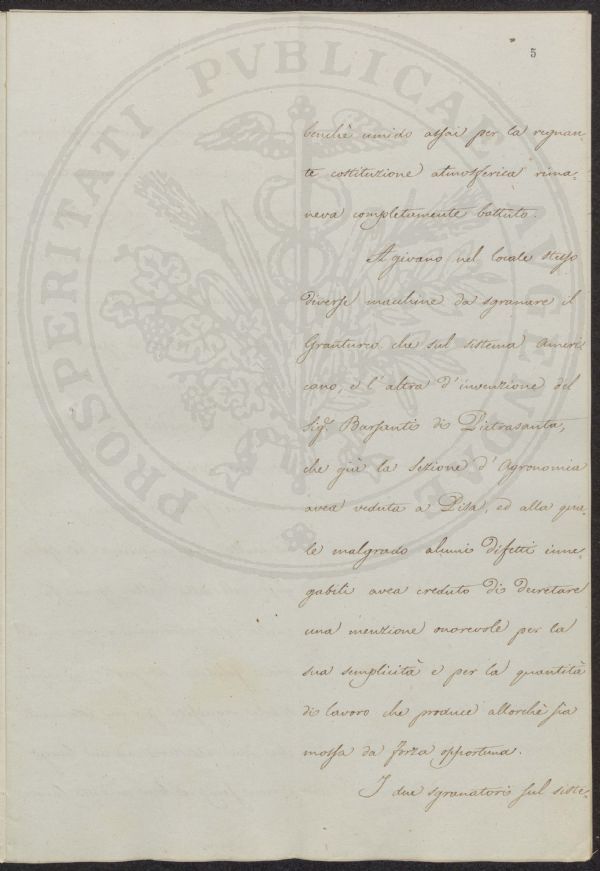 5
PROSPERITATI PVBLICAE AVGENDAE
benchè umido assai per la regnan-
te costituzione atmosferica rima-
neva completamente battuto.
Agivano nel locale stesso
diverse macchine da sgranare il
Granturco che sul sistema Ameri
cano, e l'altra d'invenzione del
Sig. Barsanti di Pietrasanta,
che già la Sezione d'Agronomia
avea veduta a Pisa, ed alla qua-
le malgrado alcuni difetti inne-
gabili avea creduto di decretare
una menzione onorevole per la
sua semplicità e per la quantità
di lavoro che produce allorchè sia
mossa da forza opportuna.
I due sgranatori sul siste-